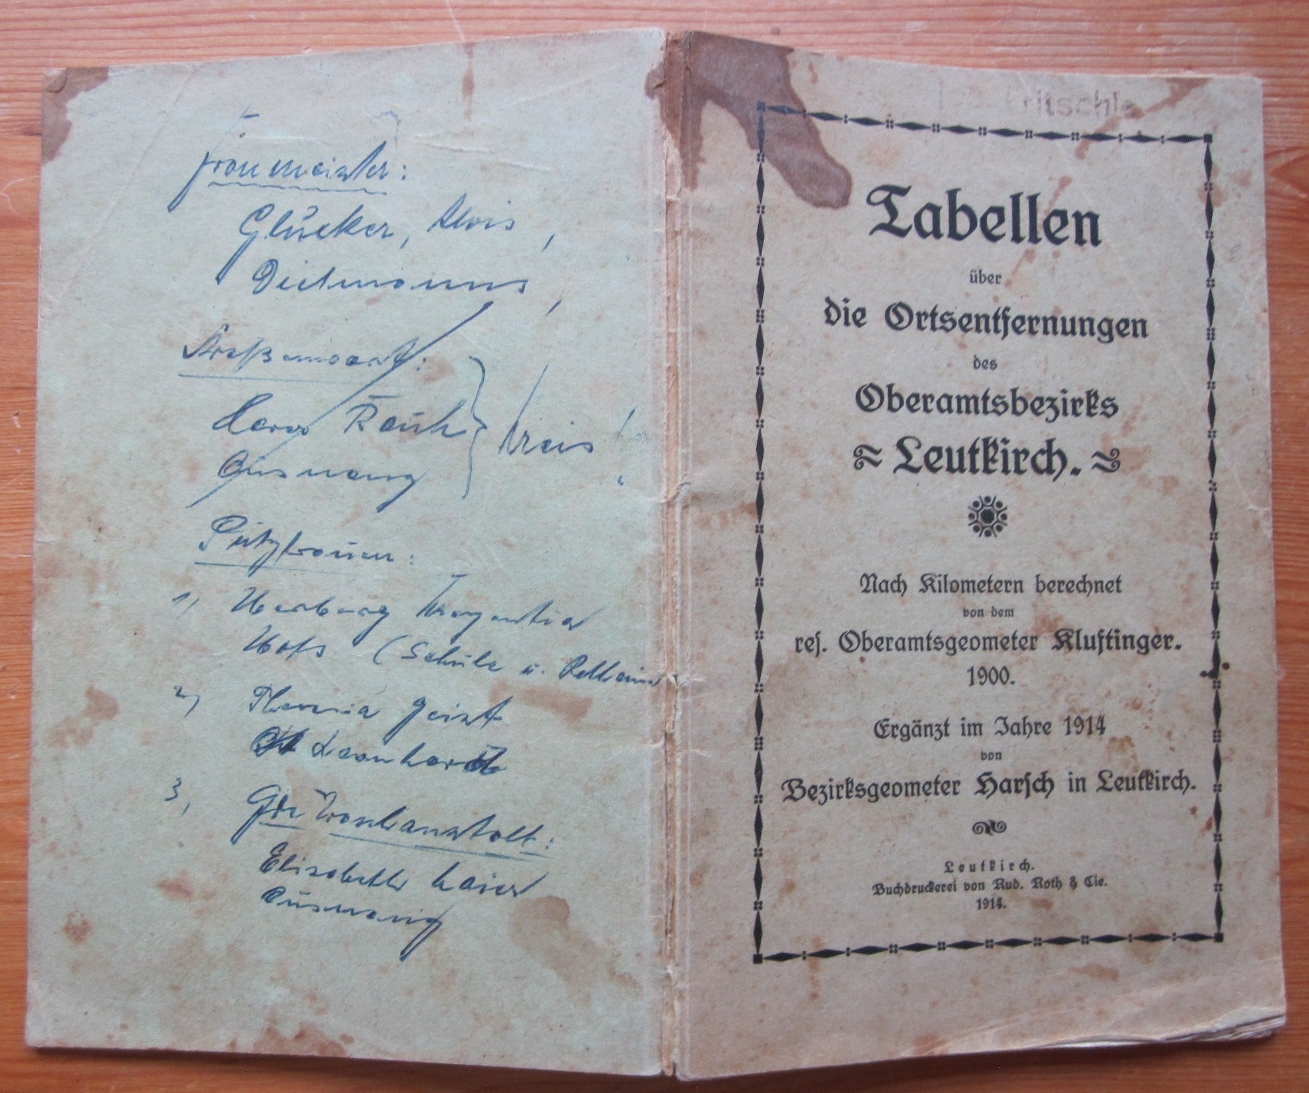 Fronmeister:
Glücker, Alois,
Dietmanns,
Straßenwart:
Rauh
Ausnang
Kreis!
Putzfrauen:
1,
(Schule u. Rathaus
2, Theresia Geist
Leonhardt
3, Gde Waschanstalt:
Elisabeth Maier
Ausnang
Fritschle
Tabellen
über
die Ortsentfernungen
des
Oberamtsbezirks
Leutkirch.
Nach Kilometern berechnet
von dem
res. Oberamtsgeometer Kluftinger.
1900.
Ergänzt im Jahre 1914
von
Bezirksgeometer Harsch in Leutkirch.
Leutkirch.
Buchdruckerei von Rud. Roth & Cie.
1914.